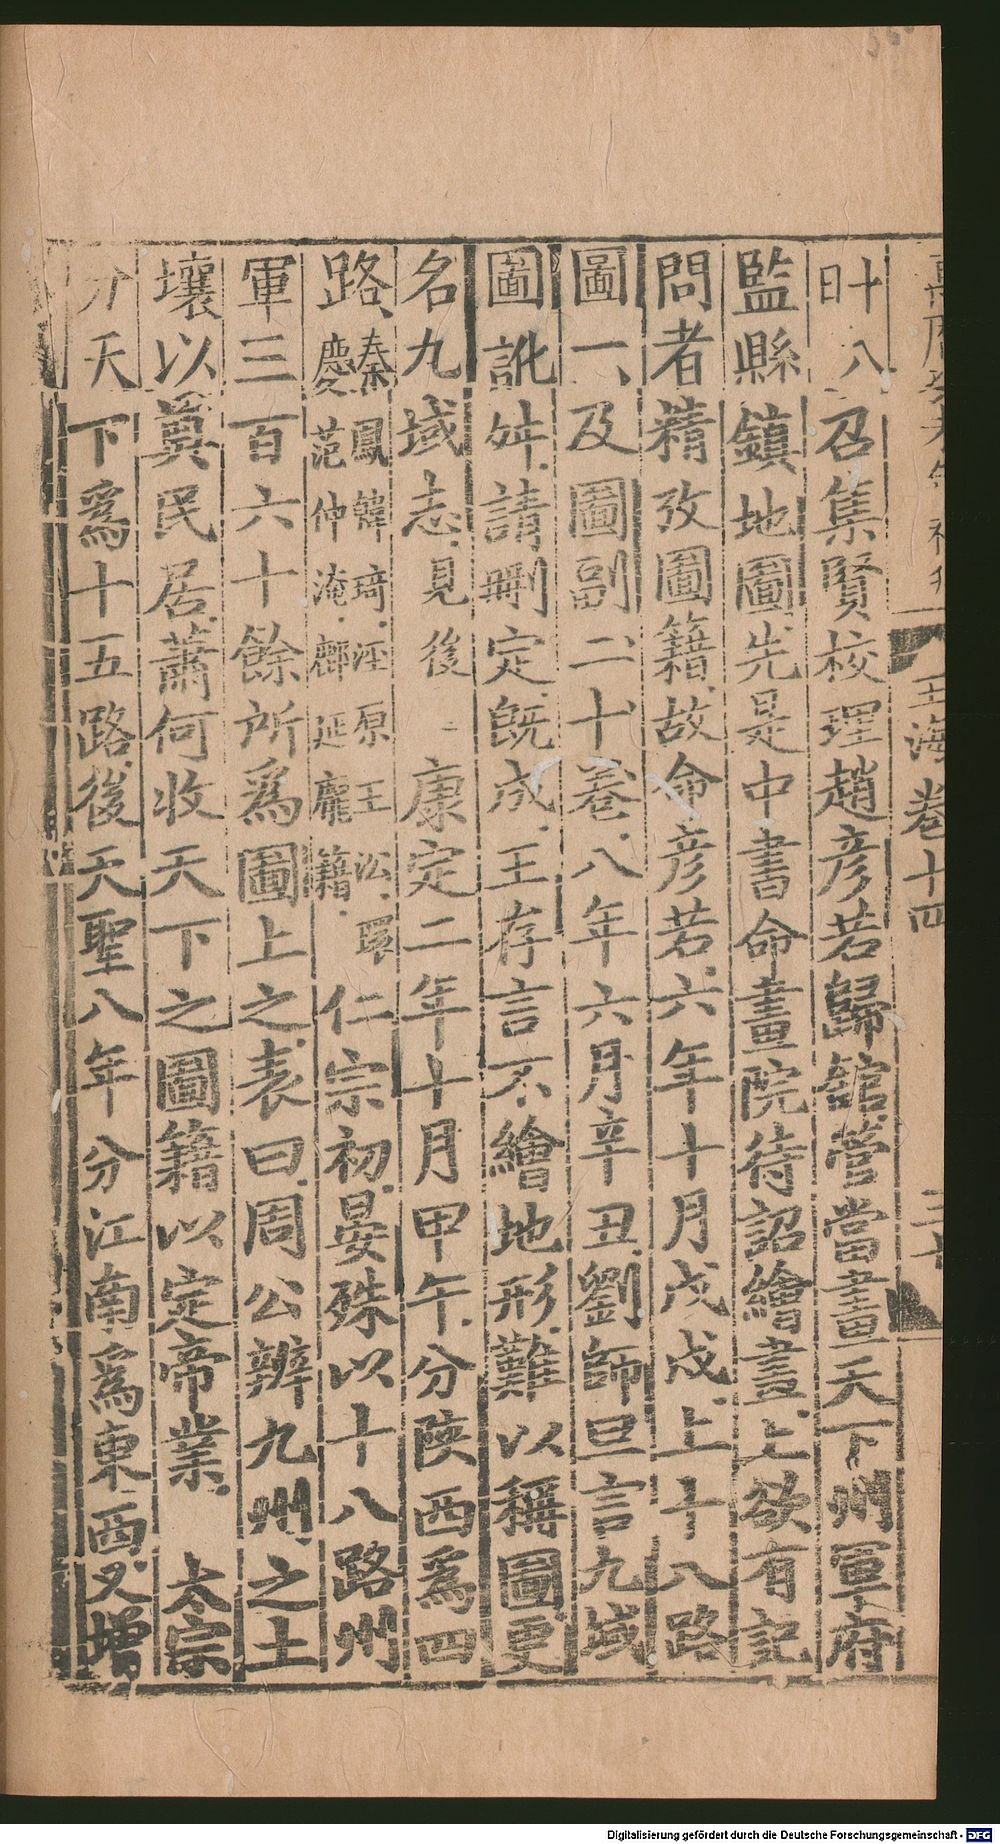 玉海卷十四
叶八召集賢校理趙彦若歸舘管當畫天下州軍府
監縣鎮地圖先是中書命畫院待詔繪畫上欲有記
問者精攷圖籍故命彦若六年十月戊戌上十八路
圖一及圖副二十卷八年六月辛丑劉師旦言九域
圖訛舛請刪定旣成王存言不繪地形難以稱圖更
名九域志見後 康定二年十月甲午分陝西爲四
路秦鳳韓琦涇原王㳂環
慶范仲淹鄜延龐籍 仁宗初晏殊以十八路州
軍三百六十餘所爲圖上之表曰周公辨九州之土
壤以奠民居蕭何收天下之圖籍以定帝業 太宗
分天下爲十五路後天聖八年分江南爲東西又增
Digitalisierung gefördert durch die Deutsche Forschungsgemeinschaft - DFG